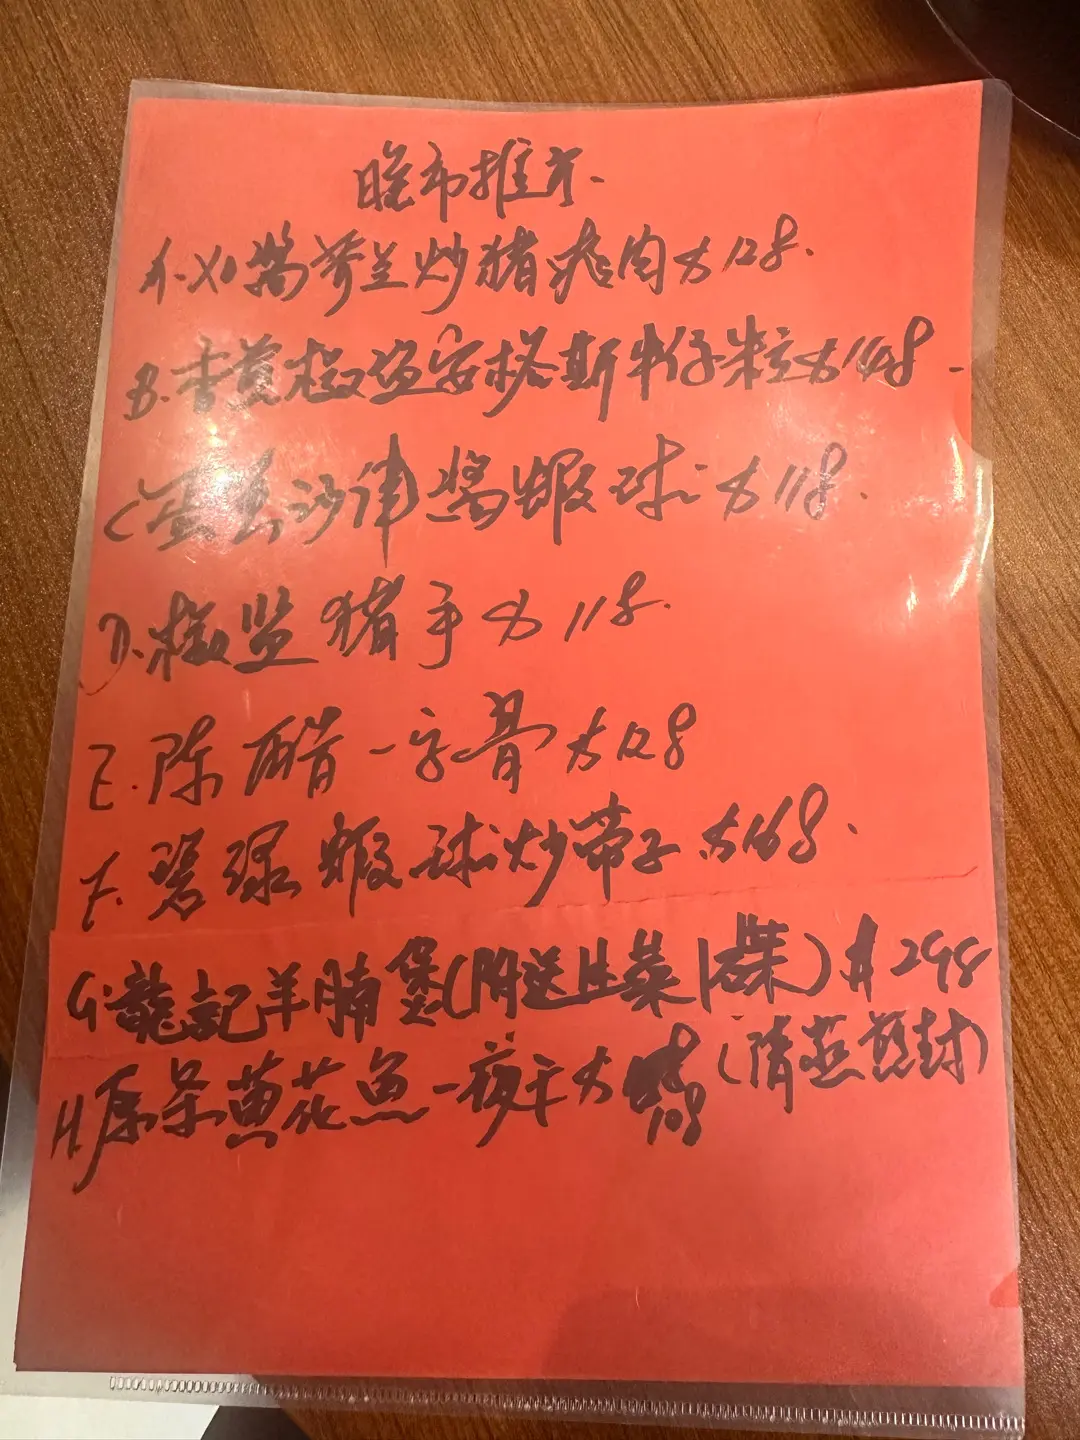 晚市推介.
A. XO醬芥兰炒猪爽肉$128.
B. 香茜椒盐安格斯牛仔粒$148.
C 沙律醬蝦球$118.
D. 椒盐猪手$118.
E. 陈醋一字骨$128
F. 碧绿蝦球炒带子$168.
G. 龍記羊腩煲(附送生菜1底)$298
H. 原条黄花魚一夜干$108